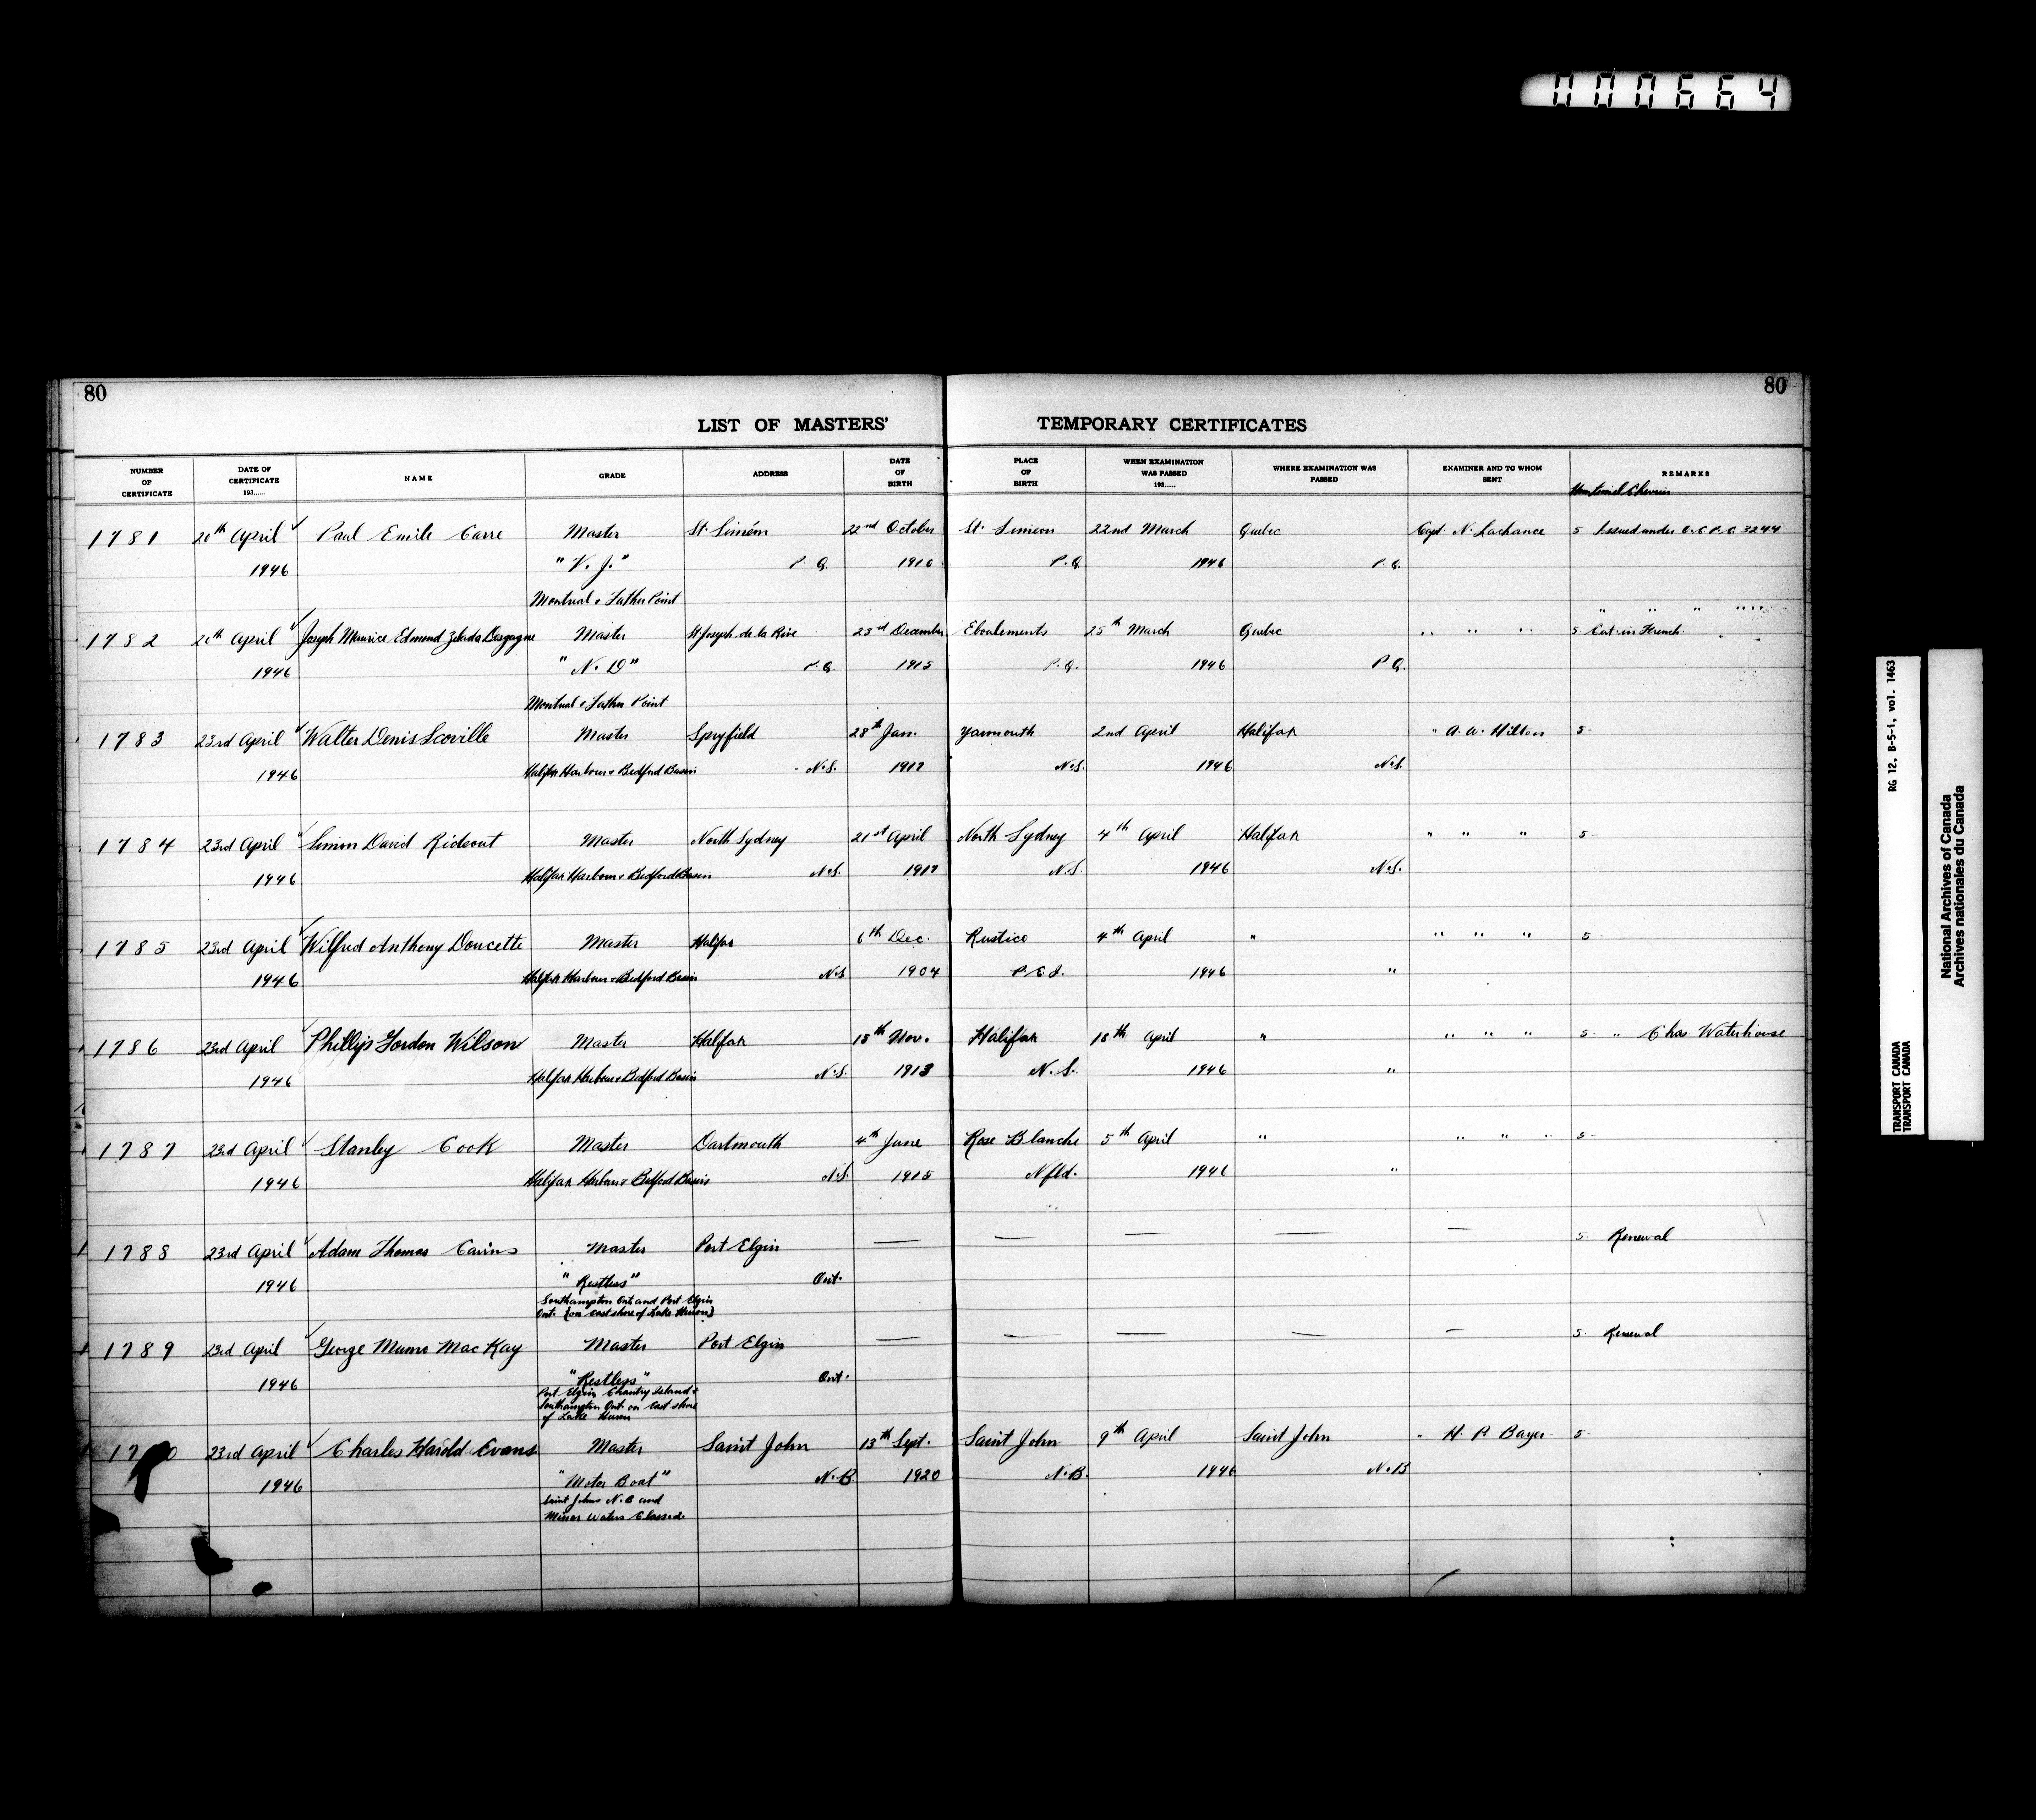 000664
80
80
LIST OF MASTERS' TEMPORARY CERTIFICATES
NUMBER OF CERTIFICATE
DATE OF CERTIFICATE 193......
NAME
GRADE
ADDRESS
DATE OF BIRTH
PLACE OF BIRTH
WHEN EXAMINATION WAS PASSED 193......
WHERE EXAMINATION WAS PASSED
EXAMINER AND TO WHOM SENT
REMARKS
1781 20th April Paul Emile Carre Master St. Siméon 22nd October St. Simeon 22nd March Quebec Capt. N. Lachance 5 Issued under O.C P.C. 3244
1946 "V. J." P.Q. 1910 P.Q. 1946 P.Q.
Montreal & Father Point
" " " " "
1782 20th April Joseph Maurice Edmond Master St Joseph de la Rive 23rd December Eboulements 25th March Quebec " " " 5 Cert. in French.
1946 "N. D" P.Q. 1915 P.Q. 1946 P.Q.
Montreal & Father Point
1783 23rd April Walter Denis Scoville Master Spryfield 28th Jan. Yarmouth 2nd April Halifax " A. W. Hilton 5
1946 Halifax Harbour & Bedford Basin N.S. 1917 N.S. 1946 N.S.
1784 23rd April Simon David Rideout Master North Sydney 21st April North Sydney 4th April Halifax " " " 5
1946 Halifax Harbour & Bedford Basin N.S. 1917 N.S. 1946 N.S.
1785 23rd April Wilfred Anthony Doucette Master Halifax 6th Dec. Rustico 4th April " " " " 5
1946 Halifax Harbour & Bedford Basin N.S 1904 P.E.I. 1946 "
1786 23rd April Phillip Gordon Wilson Master Halifax 15th Nov. Halifax 18th April " " " " 5 " Chas Waterhouse
1946 Halifax Harbour & Bedford Basin N.S. 1913 N.S. 1946 "
1787 23rd April Stanley Cook Master Dartmouth 4th June Rose Blanche 5th April " " " " 5
1946 Halifax Harbour & Bedford Basin N.S. 1915 Nfld. 1946 "
1788 23rd April Adam Thomas Cairns Master Port Elgin — — — — — 5. Renewal
1946 "Restless" Ont.
Southampton Ont and Port Elgin
Ont. (on east shore of Lake Huron)
1789 23rd April George Munro MacKay Master Port Elgin — — — — — 5. Renewal
1946 "Restless" Ont.
Port Elgin, Chantry Island &
Southampton Ont. on East shore
of Lake Huron
23rd April Charles Harold Evans Master Saint John 13th Sept. Saint John 9th April Saint John " H. P. Bayer 5
1946 "Motor Boat" N.B 1920 N.B. 1946 N.B
Saint John N.B and
Minor Waters Classed
RG 12, B-5-i, vol. 1463
TRANSPORT CANADA
TRANSPORT CANADA
National Archives of Canada
Archives nationales du Canada